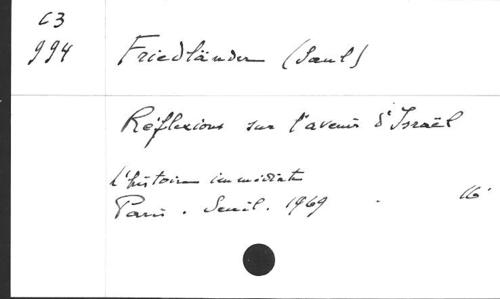 C3
994
Friedländer (Saul)
Réflexions sur l'avenir d'Israël
L'histoire immédiate
Paris. Seuil. 1969. 16°